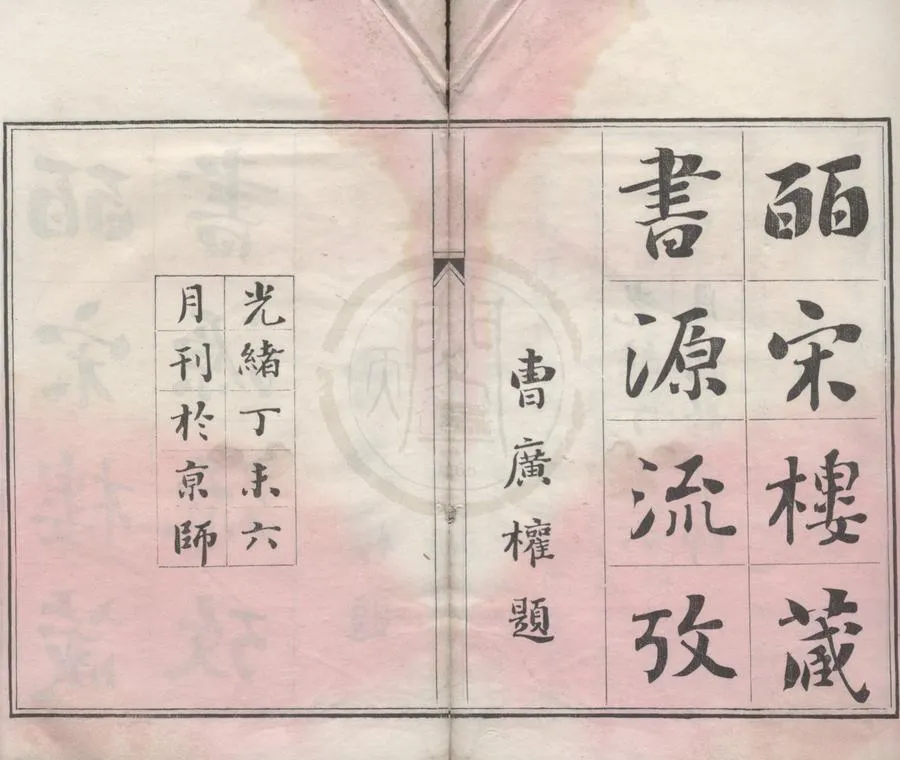 皕宋樓藏
書源流攷
曹廣權題
光緒丁未六
月刊於京師